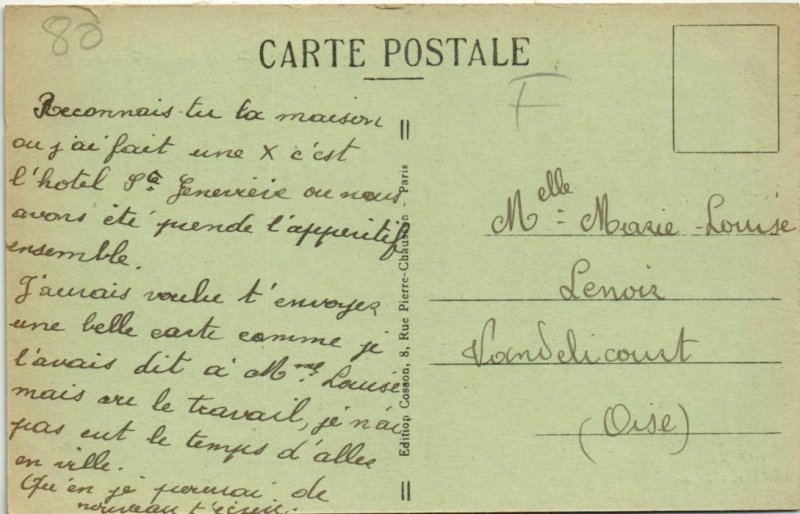 80
CARTE POSTALE
F
Reconnais-tu la maison
ou j'ai fait une X c'est
l'hotel Ste Geneviève ou nous
avons été prende l'apperitif
ensemble.
J'aurais voulu t'envoyer
une belle carte comme je
l'avais dit à Mme Louise
mais vu le travail, je n'ai
pas eut le temps d'aller
en ville.
Qu'en je pourrai de
nouveau t'écrire.
Edition Cosson, 8, Rue Pierre-Chausson - Paris
Melle Marie-Louise
Lenoir
Vandelicourt
(Oise)